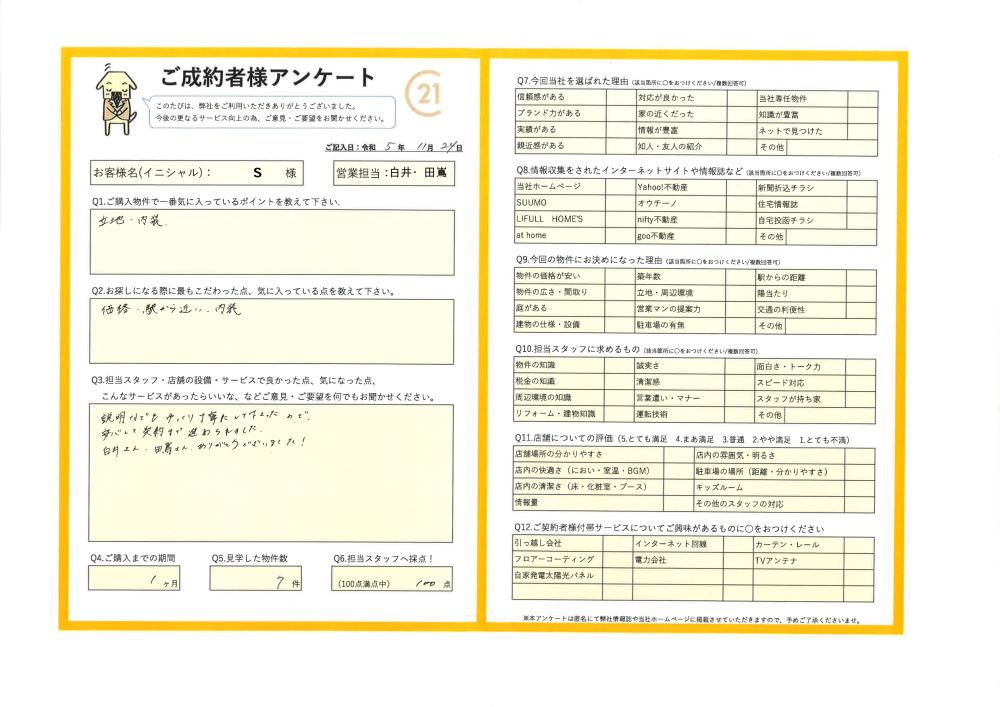 ご成約者様アンケート
21
このたびは、弊社をご利用いただきありがとうございました。
今後の更なるサービス向上の為、ご意見・ご要望をお聞かせください。
ご記入日：令和 5 年 11 月 24 日
お客様名(イニシャル)： S 様
営業担当：白井・田嶌
Q1.ご購入物件で一番気に入っているポイントを教えて下さい．
立地・内装
Q2.お探しになる際に最もこだわった点、気に入っている点を教えて下さい。
価格・駅から近い、内装
Q3.担当スタッフ・店舗の設備・サービスで良かった点、気になった点、
こんなサービスがあったらいいな、などご意見・ご要望を何でもお聞かせください。
説明なども ゆっくり丁寧にして下さったので、
安心して契約まで進められました。
白井さん、田嶌さん、ありがとうございました！
Q4.ご購入までの期間
1 ヶ月
Q5.見学した物件数
7 件
Q6.担当スタッフへ採点！
(100点満点中) 100 点
Q7.今回当社を選ばれた理由（該当箇所に○をおつけください/複数回答可）
信頼感がある 対応が良かった 当社専任物件
ブランド力がある 家の近くだった 知識が豊富
実績がある 情報が豊富 ネットで見つけた
親近感がある 知人・友人の紹介 その他
Q8.情報収集をされたインターネットサイトや情報誌など（該当箇所に○をおつけください/複数回答可）
当社ホームページ Yahoo!不動産 新聞折込チラシ
SUUMO オウチーノ 住宅情報誌
LIFULL HOME'S nifty不動産 自宅投函チラシ
at home goo不動産 その他
Q9.今回の物件にお決めになった理由（該当箇所に○をおつけください/複数回答可）
物件の価格が安い 築年数 駅からの距離
物件の広さ・間取り 立地・周辺環境 陽当たり
庭がある 営業マンの提案力 交通の利便性
建物の仕様・設備 駐車場の有無 その他
Q10.担当スタッフに求めるもの（該当箇所に○をおつけください/複数回答可）
物件の知識 誠実さ 面白さ・トーク力
税金の知識 清潔感 スピード対応
周辺環境の知識 言葉遣い・マナー スタッフが持ち家
リフォーム・建物知識 運転技術 その他
Q11.店舗についての評価（5.とても満足 4.まあ満足 3.普通 2.やや満足 1.とても不満）
店舗場所の分かりやすさ 店内の雰囲気・明るさ
店内の快適さ（におい・室温・BGM） 駐車場の場所（距離・分かりやすさ）
店内の清潔さ（床・化粧室・ブース） キッズルーム
情報量 その他のスタッフの対応
Q12.ご契約者様付帯サービスについてご興味があるものに○をおつけください
引っ越し会社 インターネット回線 カーテン・レール
フロアーコーティング 電力会社 TVアンテナ
自家発電太陽光パネル
※本アンケートは匿名にて弊社情報誌や当社ホームページに掲載させていただきますので、予めご了承くださいませ。